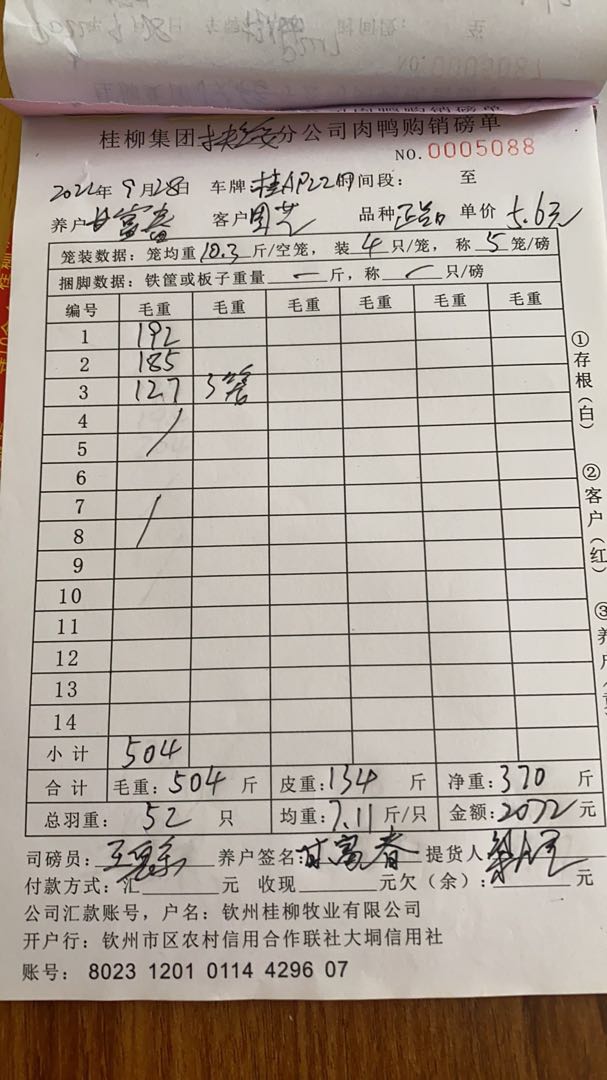 桂柳集团扶绥分公司肉鸭购销磅单
NO.0005088
2022年9月28日 车牌:桂AP22 时间段: 至
养户 甘富春 客户 周芝 品种 正品 单价 5.6元
笼装数据: 笼均重 10.3 斤/空笼, 装 4 只/笼, 称 5 笼/磅
捆脚数据: 铁筐或板子重量 — 斤, 称 — 只/磅
编号 毛重 毛重 毛重 毛重 毛重 毛重
1 192
2 185
3 127 3笼
4
5
6
7
8
9
10
11
12
13
14
小计 504
合计 毛重: 504 斤 皮重: 134 斤 净重: 370 斤
总羽重: 52 只 均重: 7.11 斤/只 金额: 2072 元
司磅员: 养户签名: 甘富春 提货人:
付款方式: 汇 元 收现 元欠(余): 元
公司汇款账号, 户名: 钦州桂柳牧业有限公司
开户行: 钦州市区农村信用合作联社大垌信用社
账号: 8023 1201 0114 4296 07
①存根(白)
②客户(红)
③养